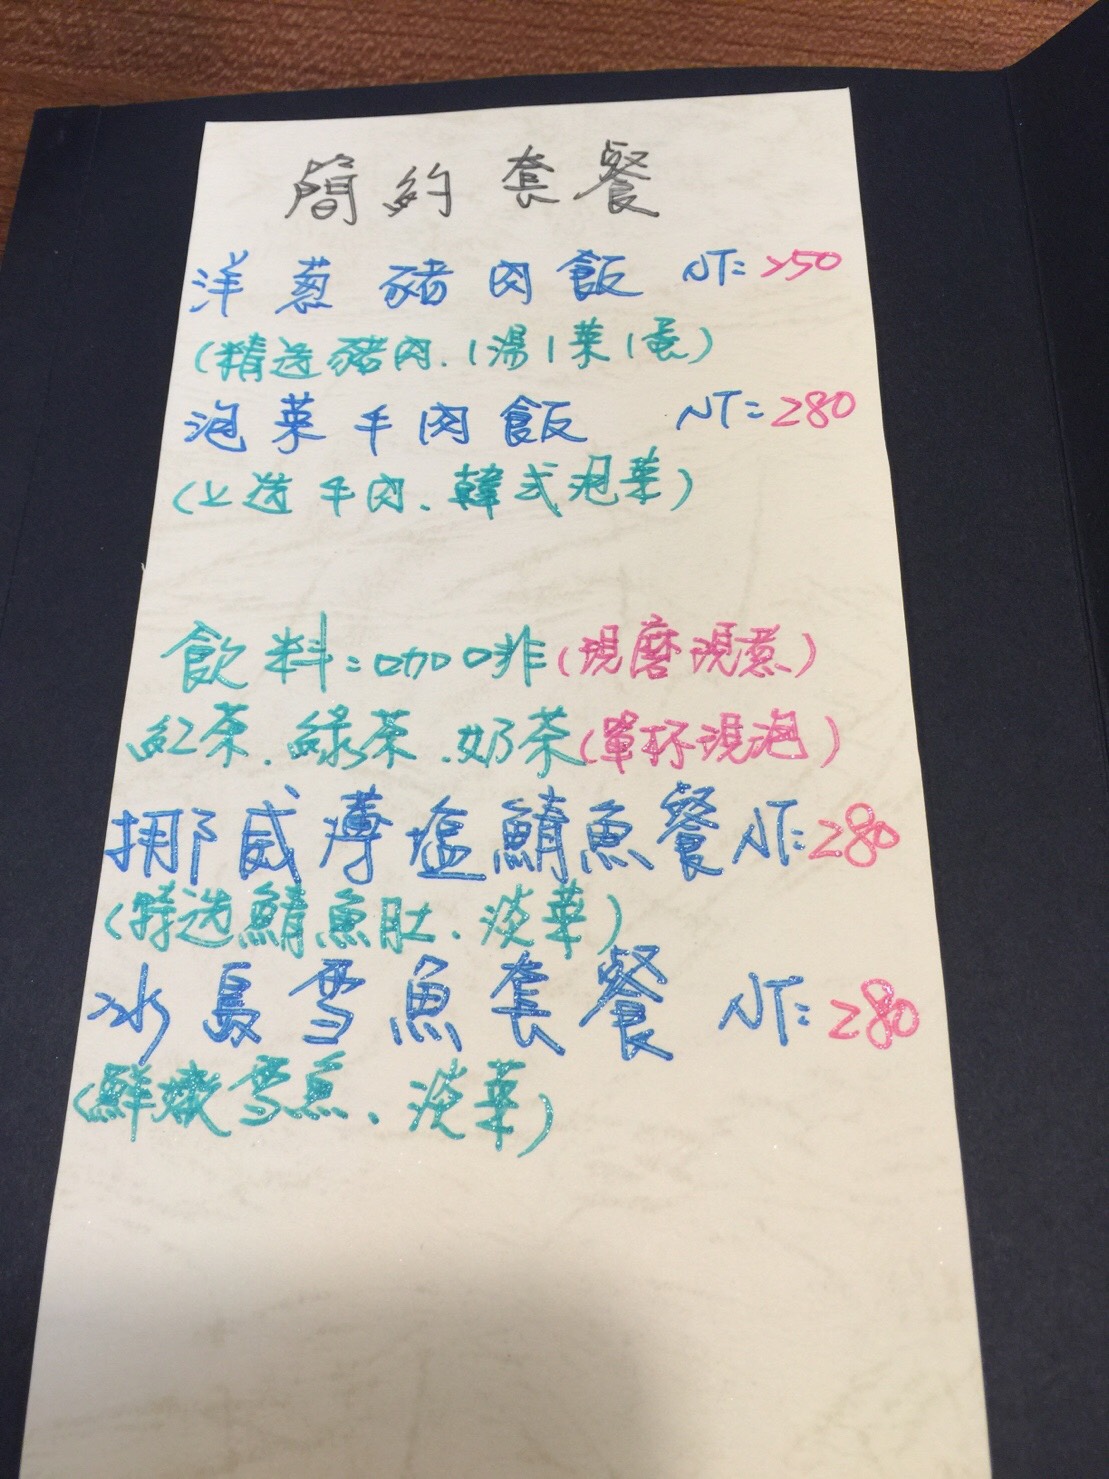 簡約套餐
洋蔥豬肉飯 NT: 250
(精选豬肉.1湯1菜1蛋)
泡菜牛肉飯 NT: 280
(上选牛肉.韓式泡菜)
飲料:咖啡(現磨現煮)
紅茶.綠茶.奶茶(單杯現泡)
挪威薄塩鯖魚餐 NT: 280
(特选鯖魚肚.淡菜)
冰島雪魚套餐 NT: 280
(鮮嫩雪魚.淡菜)